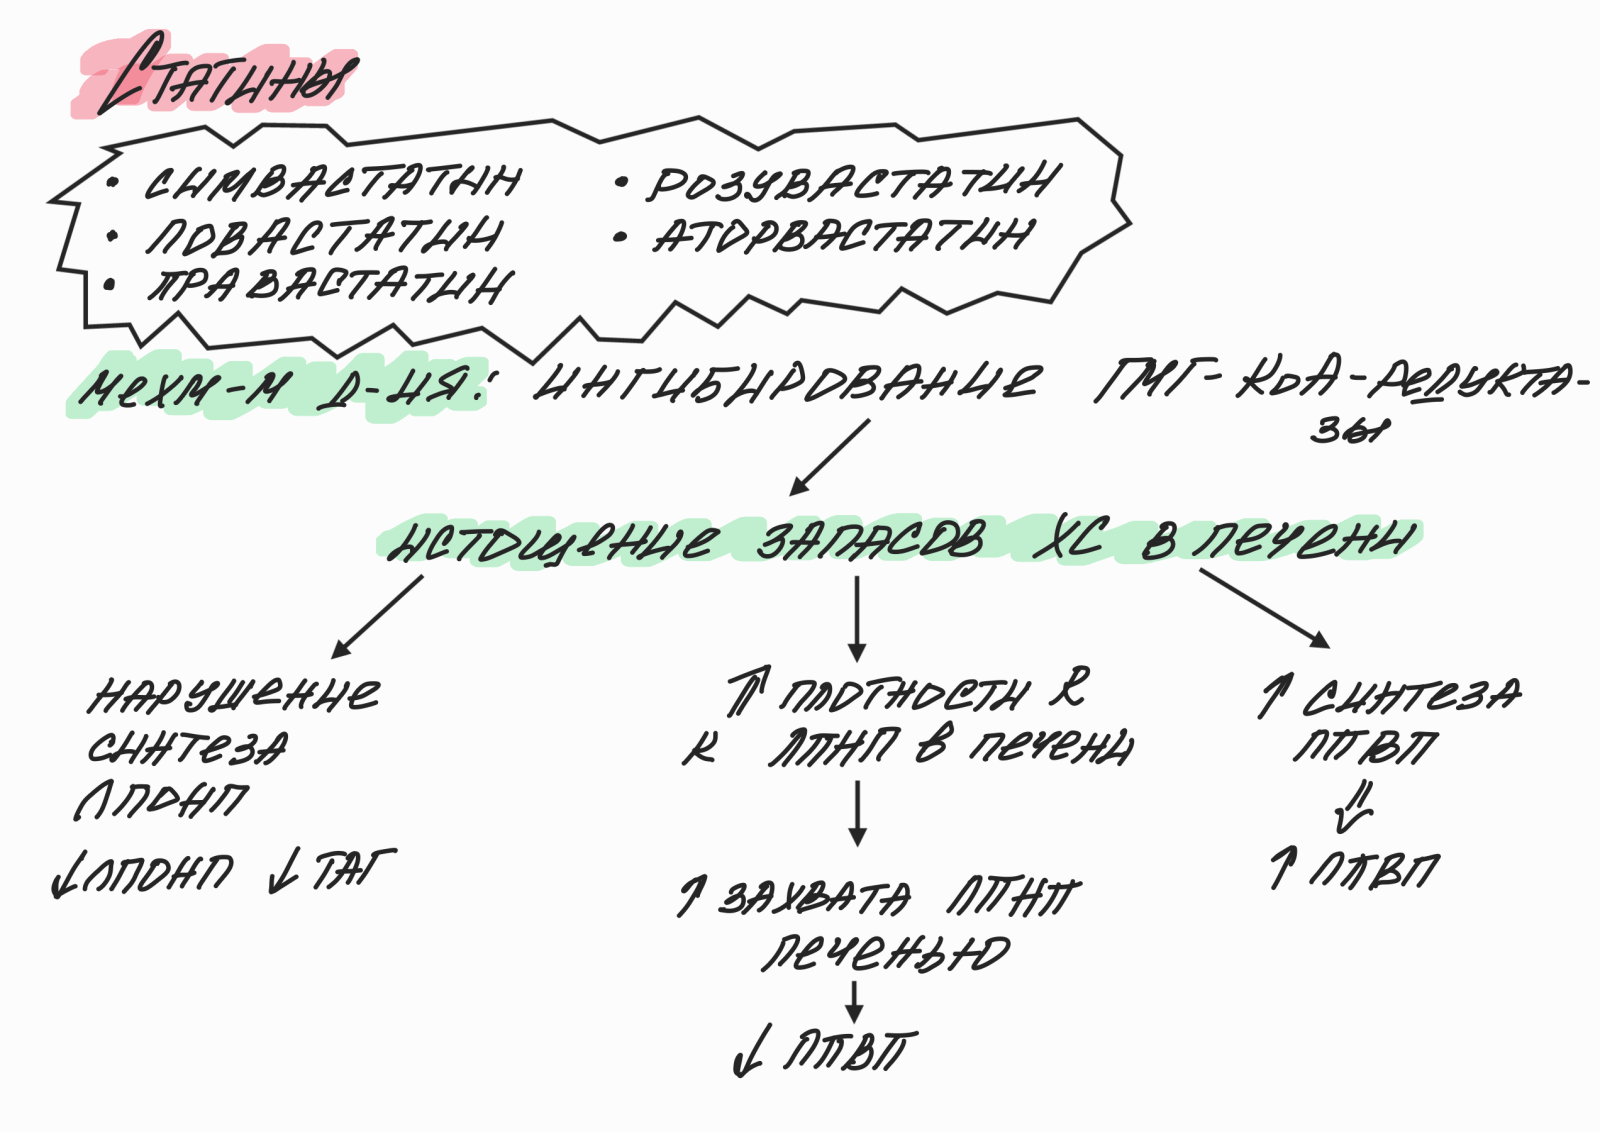 Статины
• симвастатин
• ловастатин
• правастатин
• розувастатин
• аторвастатин
Мехм-м д-ия: ингибирование ГМГ-КоА-редукта-
зы
истощение запасов ХС в печени
нарушение
синтеза
ЛПОНП
↓ЛПОНП ↓ТАГ
⇑ плотности R
к ЛПНП в печени
↑ захвата ЛПНП
печенью
↓ ЛПВП
↑ синтеза
ЛПВП
⇓
↑ ЛПВП